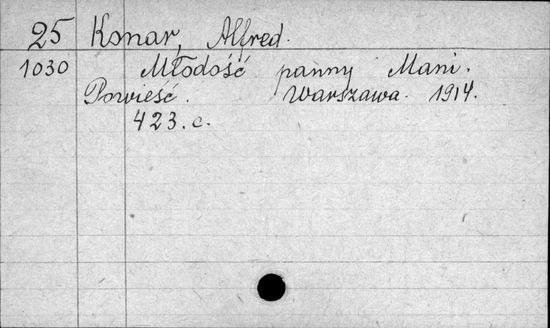 25 Konar, Alfred.
1030 Młodość panny Mani.
Powieść. Warszawa. 1914.
423. c.